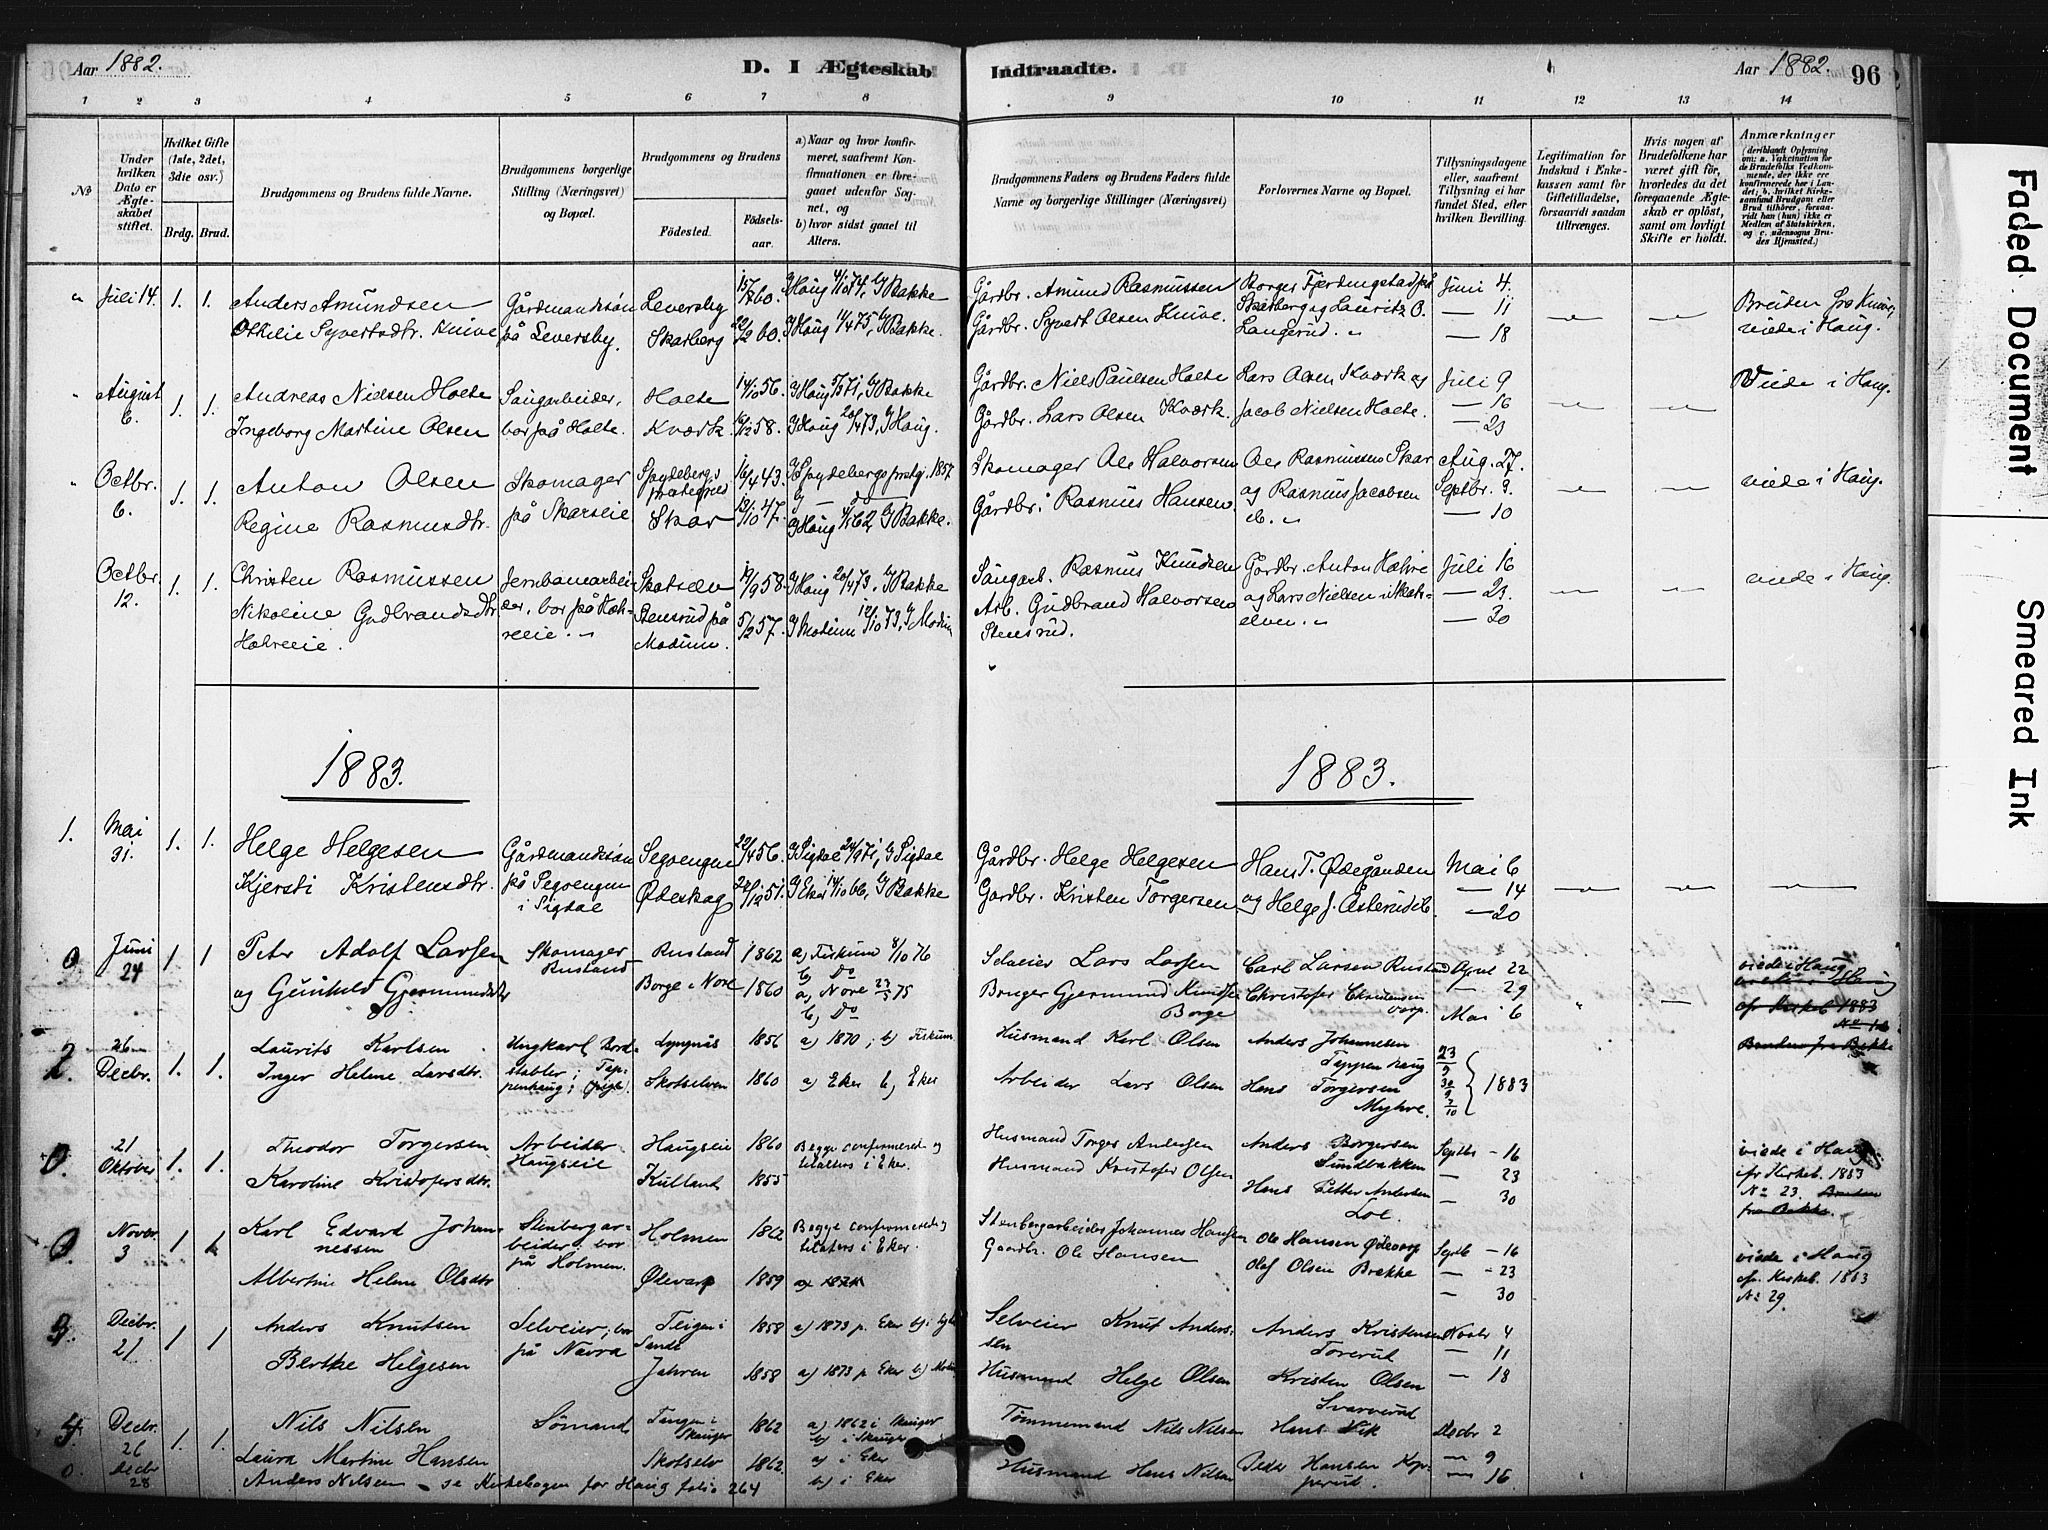 Aar 1882.
D. I Ægteskab Indtraadte.
Aar 1882. 96
1 2 3 4 5 6 7 8 9 10 11 12 13 14
No
Under hvilken Dato er Ægteskabet stiftet.
Hvilket Gifte (1ste, 2det, 3die osv.)
Brdg. Brud.
Brudgommens og Brudens fulde Navne.
Brudgommens borgerlige Stilling (Næringsvei) og Bopæl.
Brudgommens og Brudens
Fødested. Fødselsaar.
a) Naar og hvor konfirmeret, saafremt Konfirmationen er foregaaet udenfor Sognet, og
b) hvor sidst gaaet til Alters.
Brudgommens Faders og Brudens Faders fulde Navne og borgerlige Stillinger (Næringsvei)
Forlovernes Navne og Bopæl.
Tillysningsdagene eller, saafremt Tillysning ei har fundet Sted, efter hvilken Bevilling.
Legitimation for Indskud i Enkekassen samt for Giftetilladelse, forsaavidt saadan tiltrænges.
Hvis nogen af Brudefolkene har været gift før, hvorledes da det foregaaende Ægteskab er opløst, samt om lovligt Skifte er holdt.
Anmærkninger
" Juli 14. 1. 1.
Anders Amundsen
Othilie Syvertsdtr. Knive
Gårdmandssøn
på Leversby.
Leversby 15/7 60.
Skarberg 22/2 60.
a) Haug 4/10 74, b) Bakke
a) Haug 11/4 75, b) Bakke.
Gårdbr. Amund Rasmussen
Gårdbr. Syvert Olsen Knive.
Borger Fjerdingstad på
Skarberg og Lauritz O.
Langerud. "
Juni 4.
— 11
— 18
Bruden fra Knive,
viede i Haug.
" August 6. 1. 1.
Andreas Nielsen Holte
Ingeborg Martine Olsen
Sagarbeider,
bor på Holte.
Holte 14/10 56.
Kværk 16/12 58.
b) Bakke
a) Haug 20/4 73, b) Haug.
Gårdbr. Niels Paulsen Holte
Gårdbr. Lars Olsen Kværk.
Lars Olsen Kværk og
Jacob Nielsen Holte.
Juli 9
— 16
— 23
Viede i Haug.
" Octbr. 6. 1. 1.
Anton Olsen
Regine Rasmusdtr.
Skomager
på Skarseie
Spydebergs
præstegjed 16/4 43.
Skar 13/10 47.
a) Spydebergs prstgj. 1857.
b) — do —
b) Bakke.
Skomager Ole Halvorsen
Gårdbr. Rasmus Hansen
Ole Rasmussen Skar
og Rasmus Jacobsen
ib. "
Aug. 27.
Septbr. 3.
— 10
viede i Haug.
Octbr. 12. 1. 1.
Christen Rasmussen
Nikoline Gudbrandsdtr
Hohreeie.
Jernbanearbei-
der, bor på Hoh-
reeie. "
Skotselv 19/9 58.
Stensrud på
Modum. 5/2 57.
a) Haug 20/4 73, b) Bakke
a) Modum 12/10 73, b) Modum
Sagarb. Rasmus Knudsen
Arb. Gudbrand Halvorsen
Stensrud.
Gårdbr. Anton Hohre
og Lars Nielsen i Skots-
elven. "
Juli 16
— 23.
— 30
viede i Haug.
1883. 1883.
1. Mai 31. 1. 1.
Helge Helgesen
Kjersti Kristensdtr.
Gårdmandssøn
på Segoengen
i Sigdal
Segoengen 22/4 56.
Ødeskag 22/12 51.
a) Sigdal 24/9 71, b) Sigdal
a) Eker 14/10 66, b) Bakke
Gårdbr. Helge Helgesen
Gårdbr. Kristen Torgersen
Hans T. Ødegården
og Helge J. Østerud ib.
Mai 6
— 14
— 20
0 Juni 24 1 1
Peter Adolf Larsen
og Gunhild Gjermundsdtr
Skomager
Rustand
Rustand 1862
Borge i Nore 1860
a) Fiskum 8/10 76
b) Do
a) Nore 23/5 75
b) Do
Selveier Lars Larsen
Bruger Gjermund Knudsen
Borge
Carl Larsen Rustand
Christofer Christensen
April 22
— 29
Mai 6
viede i Haug
cfr. Kirkeb. 1883
Bruden fra Bakke
2. 26 Decbr. 1. 1.
Laurits Karlsen
Inger Helene Larsdtr.
Ungkarl Bord-
stabler; Tep-
penhaug;
Lyngnås 1856
Skotselven 1860
a) 1870; b) Fiskum
a) Eker b) Eker
Husmand Karl Olsen
Arbeider Lars Olsen
Anders Johannesen
Teppenhaug
Hans Torgersen
Myhre.
23/9
30/9
7/10
1883
0. 21 Oktober 1. 1.
Theodor Torgersen
Karoline Kristofersdtr.
Arbeider
Haugseie
Haugseie 1860
Kulland 1855
Begge confirmerede og
tilalters i Eker.
Husmand Torger Andersen
Husmand Kristofer Olsen
Anders Borgersen
Sundbakken
Hans Petter Andersen
Loe.
Septbr — 16
— 23
— 30
viede i Haug
cfr Kirkeb. 1883
No 23. Bruden
fra Bakke.
0. Novbr. 3 1 1
Karl Edvard Johan-
nessen
Albertine Helene Olsdtr
Stenbergar-
beider, bor
på Holmen.
Holmen 1862
Ødevarp 1859
Begge confirmerede og
tilalters i Eker.
Stenbergarbeider Johannes Hansen
Gaardbr. Ole Hansen
Ole Hansen Ødevarp
Olaf Olsen Brekke
Septb — 16
— 23
— 30
viede i Haug
cfr. Kirkeb. 1883
No 29.
3 Decbr. 21 1 1
Anders Knutsen
Berthe Helgesen
Selveier, bor
på Navra
Teigen i
Sande 1858
Jahren 1858
a) 1873 p. Eker
a) 1873 p. Eker
Selveier Knut Anders-
sen
Husmand Helge Olsen
Anders Kristensen
Torerud
Kristen Olsen
Svarverud
Novbr 4
— 11
— 18
4 Decbr. 26 1. 1.
Nils Nilsen
Laura Martine Hansen
Sømand
Tangen i
Skauger 1862
Skotselv 1862
a) 1862 i Skauger
b) i Skauger
a) i Eker
b) i Eker
Tømmermand Nils Nilsen
Husmand Hans Nilsen
Hans Vik
Peder Hansen Kop-
perud.
Decbr 2
— 9
— 16
0. Decbr 28
Anders Nilsen — se Kirkebogen for Haug folio 264
Faded Document
Smeared Ink